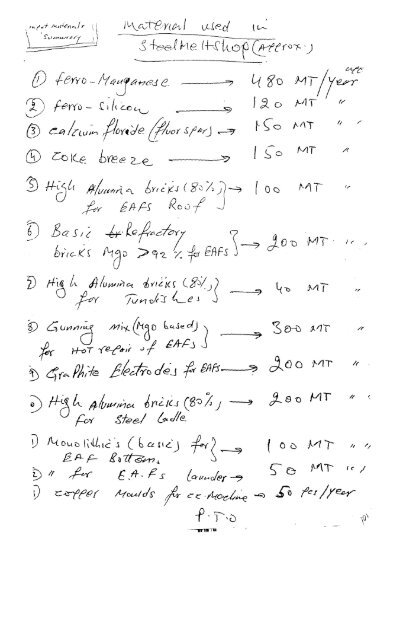 Input materials
Summary
Material used in
Steelmeltshop (Approx.)
① Ferro-Manganese → 480 MT/year
② Ferro-Silicon → 120 MT "
③ Calcium floride (fluorspar) → 150 MT " "
④ Coke breeze → 150 MT "
5) High Alumina bricks (80%) → 100 MT "
for EAFS Roof
6) Basic Refractory
bricks Mgo >92% for EAFS → 200 MT " "
7) High Alumina bricks (80%)
for Tundishes → 40 MT "
8) Gunning mix (Mgo based)
for HOT repair of EAFS → 300 MT "
9) Graphite Electrodes for EAFS → 200 MT "
0) High Alumina bricks (80%) → 200 MT " "
for Steel Ladle
1) Monolithic's (basic) for
EAF Bottom. → 100 MT " "
2) " for E.A.Fs launder → 50 MT " "
1) Copper Moulds for cc Machine → 50 Pcs/year
P.T.O